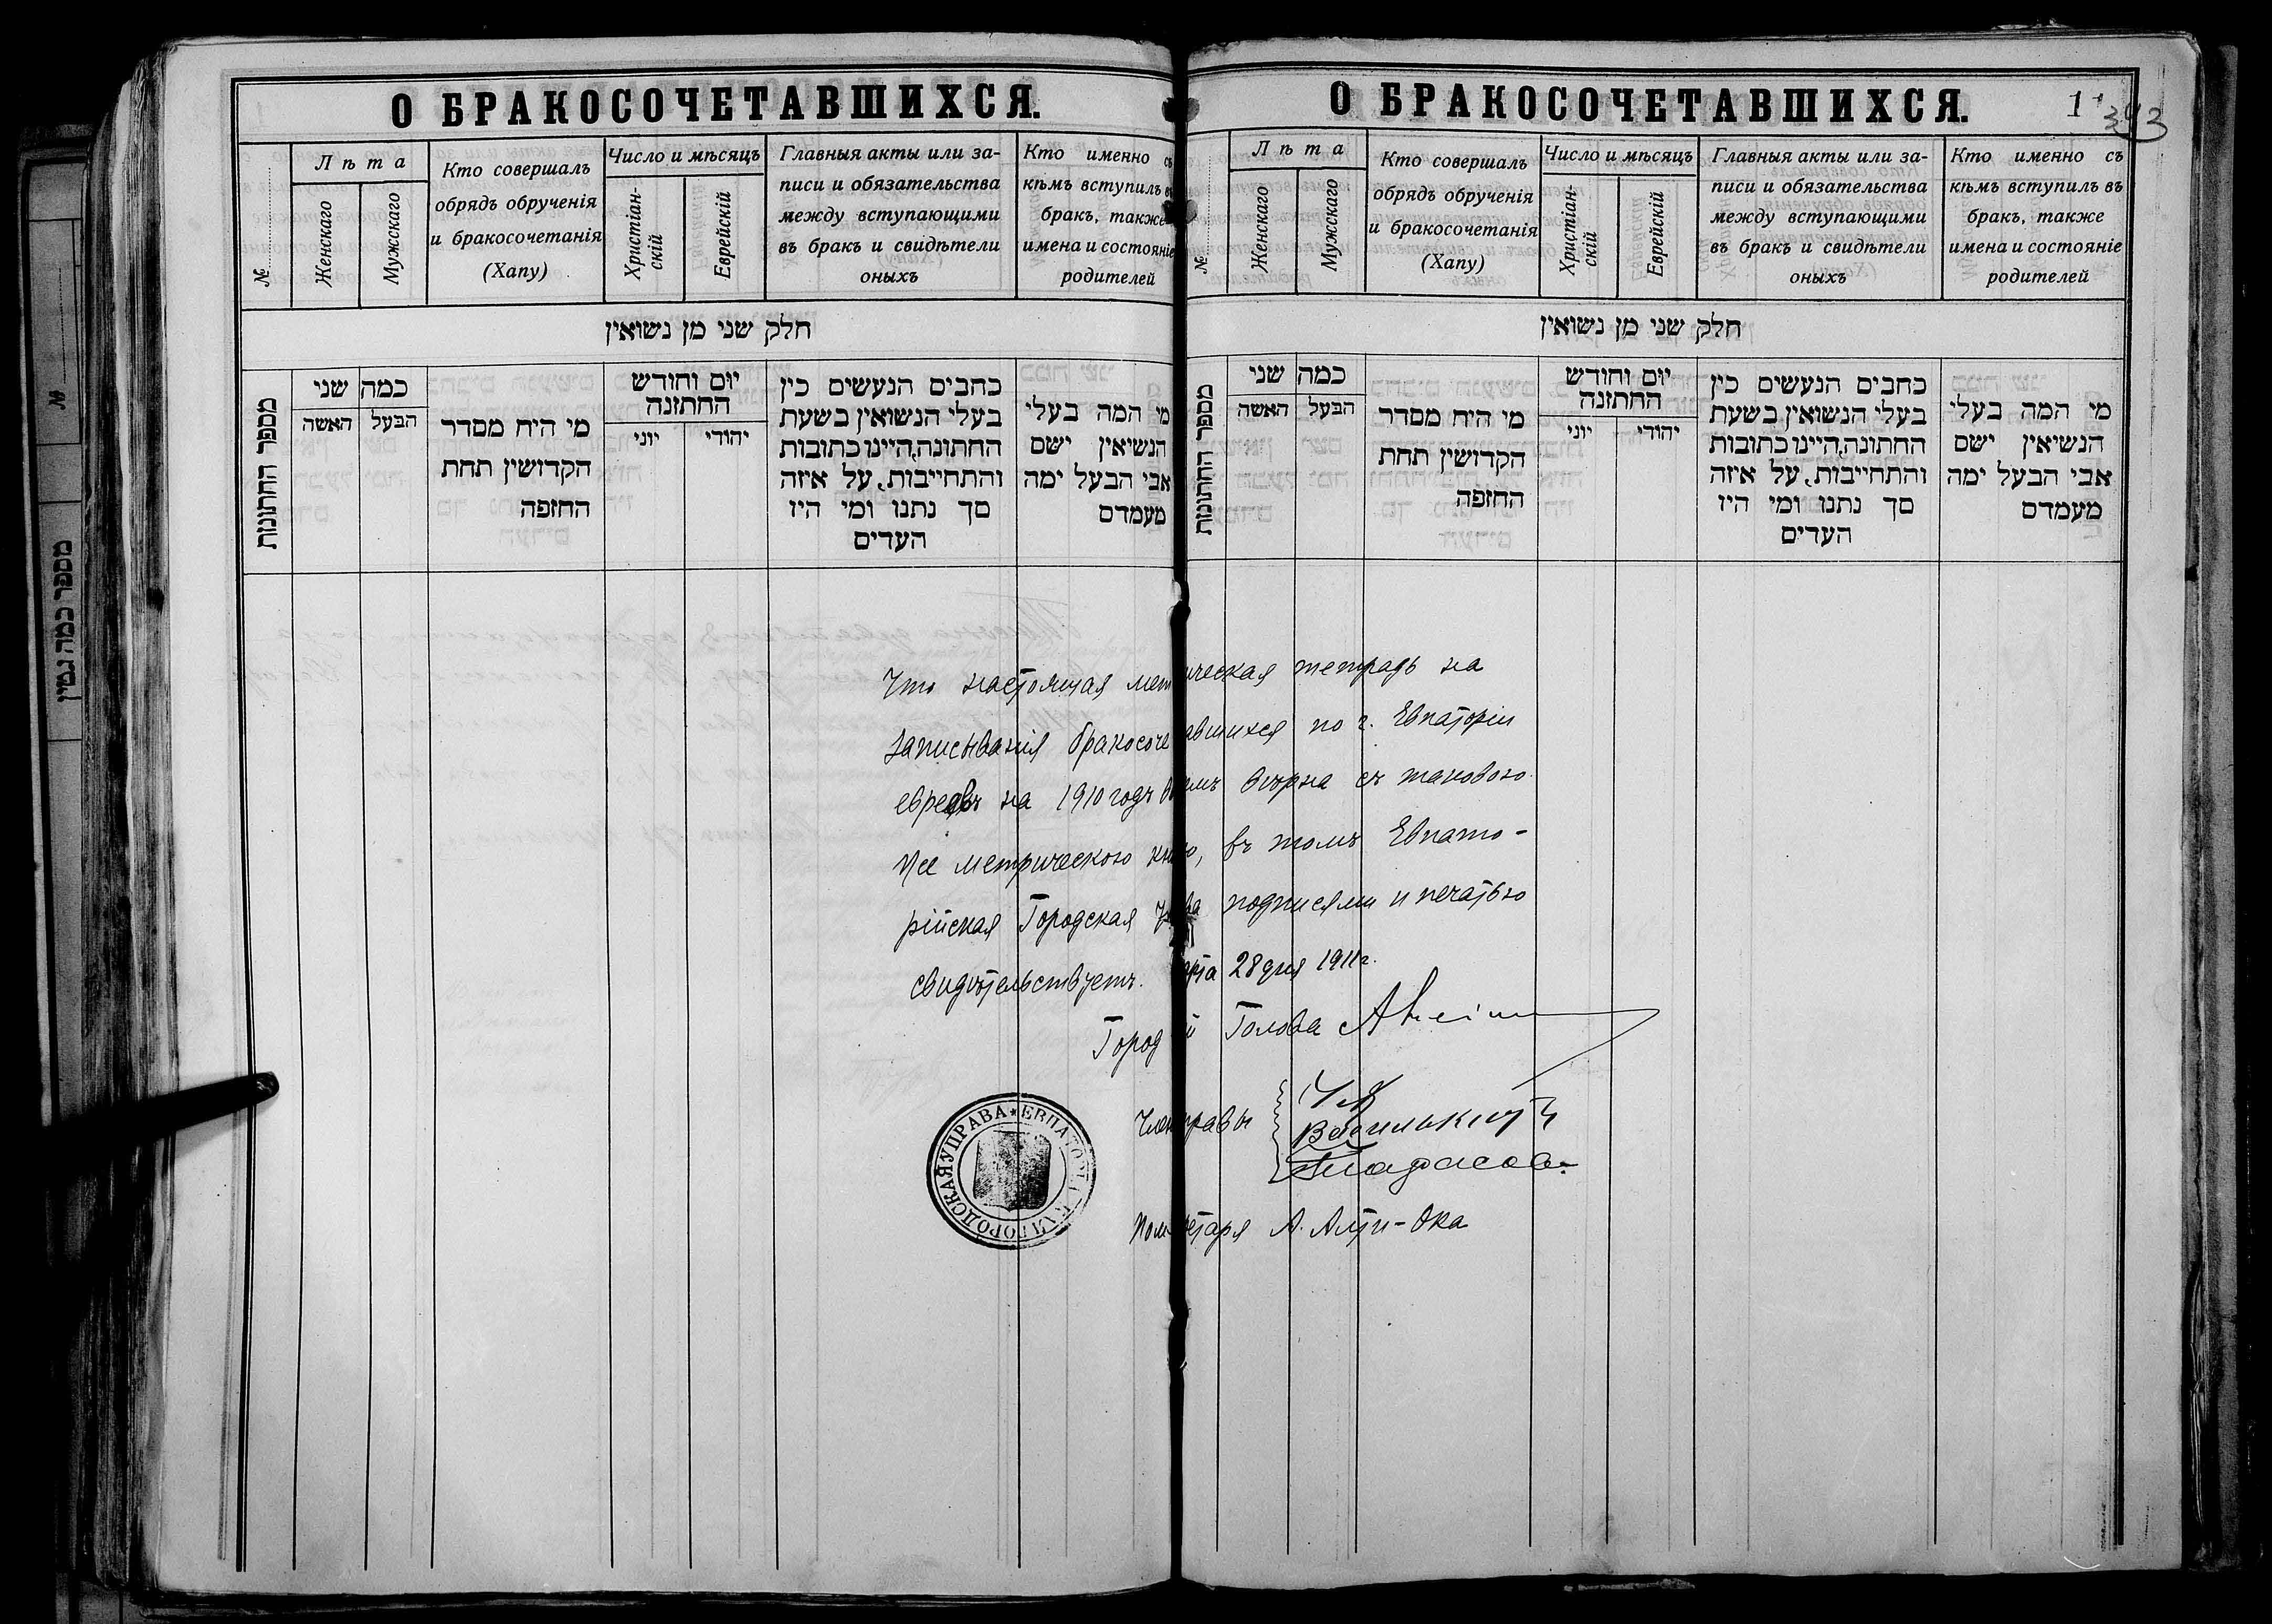 О БРАКОСОЧЕТАВШИХСЯ.
№
Лѣта
Женскаго
Мужскаго
Кто совершалъ
обрядъ обрученія
и бракосочетанія
(Хапу)
Число и мѣсяцъ
Христіан-
скій
Еврейскій
Главныя акты или за-
писи и обязательства
между вступающими
въ бракъ и свидѣтели
оныхъ
Кто именно съ
кѣмъ вступилъ въ
бракъ, также
имена и состояніе
родителей
חלק שני מן נשואין
מספר החתונות
כמה שני
הבעל
האשה
מי היח מסדר
הקדושין תחת
החזפה
יום וחודש
החתזנה
יהודי
יוני
כחבים הנעשים כין
בעלי הנשואין בשעת
החתונה,היינו כתובות
והתחייבות, על איזה
סך נתנו ומי היז
העדים
מי המה בעלי
הנשיאין ישם
אבי הבעל ימה
מעמדם
О БРАКОСОЧЕТАВШИХСЯ.
1
393
№
Лѣта
Женскаго
Мужскаго
Кто совершалъ
обрядъ обрученія
и бракосочетанія
(Хапу)
Число и мѣсяцъ
Христіан-
скій
Еврейскій
Главныя акты или за-
писи и обязательства
между вступающими
въ бракъ и свидѣтели
оныхъ
Кто именно съ
кѣмъ вступилъ въ
бракъ, также
имена и состояніе
родителей
חלק שני מן נשואין
מספר החתונות
כמה שני
הבעל
האשה
מי היח מסדר
הקדושין תחת
החזפה
יום וחודש
החתזנה
יהודי
יוני
כחבים הנעשים כין
בעלי הנשואין בשעת
החתונה,היינו כתובות
והתחייבות, על איזה
סך נתנו ומי היז
העדים
מי המה בעלי
הנשיאין ישם
אבי הבעל ימה
מעמדם
Что настоящая метрическая тетрадь на
записыванія бракосочетавшихся по г. Евпаторіи
евреевъ на 1910 годъ вѣрна съ таковою
же метрическою книгою, въ томъ Евпато-
рійская Городская Управа подписями и печатью
свидѣтельствуетъ. Марта 28 дня 1911 г.
Городской Голова
Члены Управы
Пом. Секретаря А. Алти-Ока
ЕВПАТОРІЙСКАЯ ГОРОДСКАЯ УПРАВА
№
מספר כמה גטין